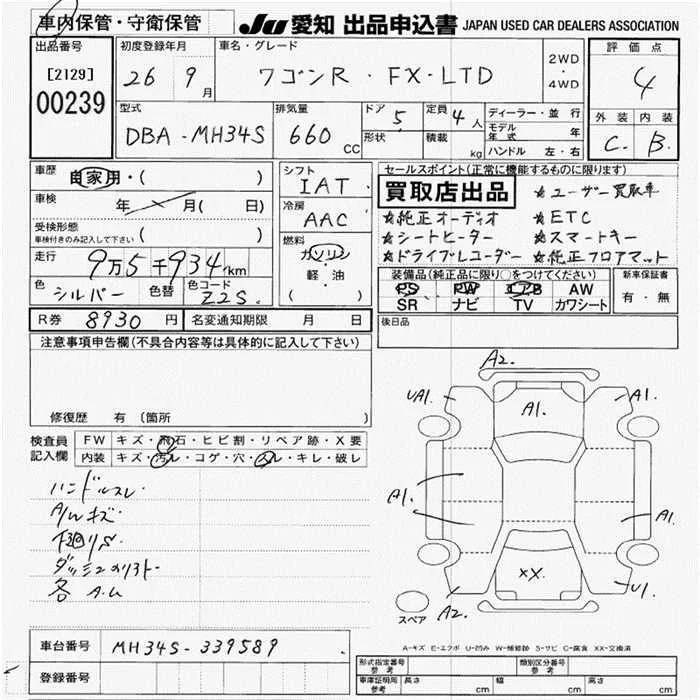 車内保管・守衛保管
JU 愛知 出品申込書 JAPAN USED CAR DEALERS ASSOCIATION
出品番号
[2129]
00239
初度登録年月
26 9月
車名・グレード
ワゴンR・FX-LTD
2WD
・
4WD
評価点
4
外装 内装
C B
型式
DBA-MH34S
排気量
660 CC
ドア 5
形状
定員 4人
積載 kg
ディーラー・並行
モデル年式 年
ハンドル 左・右
車歴 自家用・( )
車検 年 月( 日)
受検形態
車検付きのみ記入して下さい ( )
走行 9万5千934km
色 シルバー 色替 色コード Z2S
シフト
IAT
冷房
AAC
燃料
ガソリン
・
軽・油
( )
セールスポイント(正常に機能するものに限ります)
買取店出品 ★ユーザー買取車
★純正オーディオ ★ETC
★シートヒーター ★スマートキー
★ドライブレコーダー ★純正フロアマット
装備品(純正品に限り○をつけてください)
PS PW エアB AW
SR ナビ TV カワシート
新車保証書
有・無
R券 8930円 名変通知期限 月 日
後日品
注意事項申告欄(不具合内容等は具体的に記入して下さい)
修復歴 有 (箇所 )
検査員
記入欄
FW キズ・飛石・ヒビ割・リペア跡・X要
内装 キズ・汚レ・コゲ・穴・スレ・キレ・破レ
ハンドルスレ
A/Wキズ
下廻りS
ダッシュ
各 A.U
A2.
UA1. A1. A1.
A1. A1
XX.
A2. U1.
スペア
A-キズ E-エクボ U-凹み W-補修跡 S-サビ C-腐食 XX-交換済
車台番号 MH34S-339589
登録番号
形式指定番号 参考 類別区分番号 参考
車庫証明用 参考 長さ cm 幅 cm 高さ cm